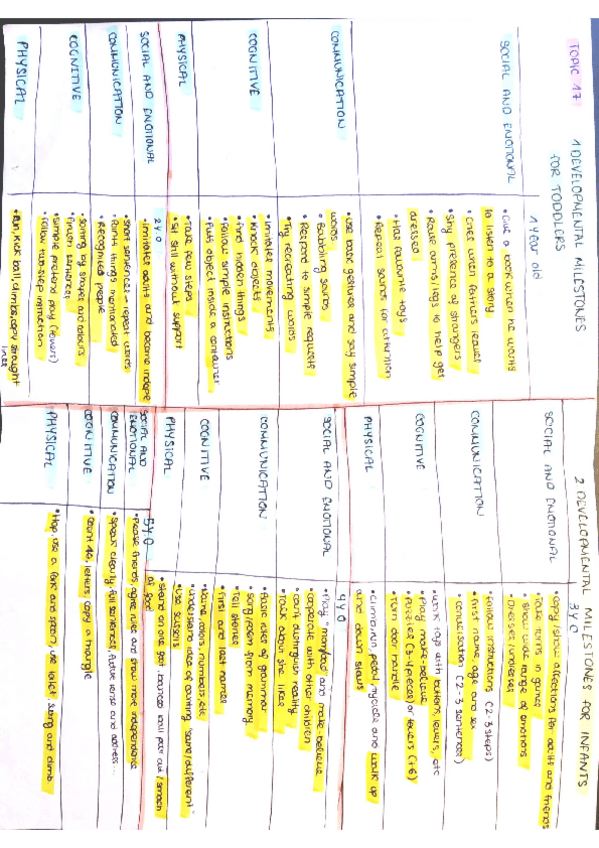 TOPIC 17
1 DEVELOPMENTAL MILESTONES
FOR TODDLERS
1 year old
SOCIAL AND EMOTIONAL
• Give a book when he wants
to listen to a story
• Cries when fathers leave
• Shy presence of strangers
• Raise arms/legs to help get
dressed
• Has favourite toys
• Repeat sounds for attention
COMMUNICATION
• Use basic gestures and say simple
words.
• Babbling sounds
• Respond to simple requests
• Try recreating words
COGNITIVE
• Imitate movements
• Knock objects
• Find hidden things
• Follow simple instructions
• Puts object inside a container
PHYSICAL
• Take few steps
• Sit still without support
2 Y.O
SOCIAL AND EMOTIONAL
• Imitates adults and become indepe
COMMUNICATION
• short sentences - repeat words
• Points things mentionated
• Recognised people
COGNITIVE
• Sorting by shapes and colours
• Finish sentences
• Simple pretend play (4 evers)
• Follow two-step instruction
PHYSICAL
• Run, kick ball, climbs, copy straight
lines
2 DEVELOPMENTAL MILESTONES FOR INFANTS
3 Y.O
SOCIAL AND EMOTIONAL
• Copy/show affections for adults and friends
• Take turns in games
• Show wide range of emotions
• Dresses/undresses
COMMUNICATION
• Follow instructions (2-3 steps)
• First name, age and sex
• conversation (2-3 sentences)
COGNITIVE
• Work toys with buttons, levers, etc
• Play make-believe
• Puzzles (3-4 pieces) or towers (+6)
• turn door handle
PHYSICAL
• Climb, run, pedal tricycle and walk up
and down stairs
4 Y.O
SOCIAL AND EMOTIONAL
• Play "mom/dad" and make-believe
• cooperate with other children
• can't distinguish reality
• Talk about she likes
COMMUNICATION
• Basic rules of grammar
• Song/poem from memory
• Tell stories
• First and last name
COGNITIVE
• Name colors, numbers, etc
• understand idea of counting "same/different"
• use scissors
PHYSICAL
• Stand on one foot, bounced ball, pour, cut, smash
of food
5 Y.O
SOCIAL AND
EMOTIONAL
• Please friends, agree rules and show more independence
COMMUNICATION
• Speak clearly, full sentences, future tense and address...
COGNITIVE
• Count 10, letters, copy a triangle
PHYSICAL
• Hop, use a fork and spoon, use toilet, swing and climb.